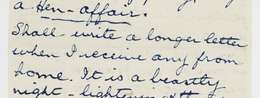 a Hen-affair.
Shall write a longer letter
when I receive any from
home. It is a beastly
night - lightening